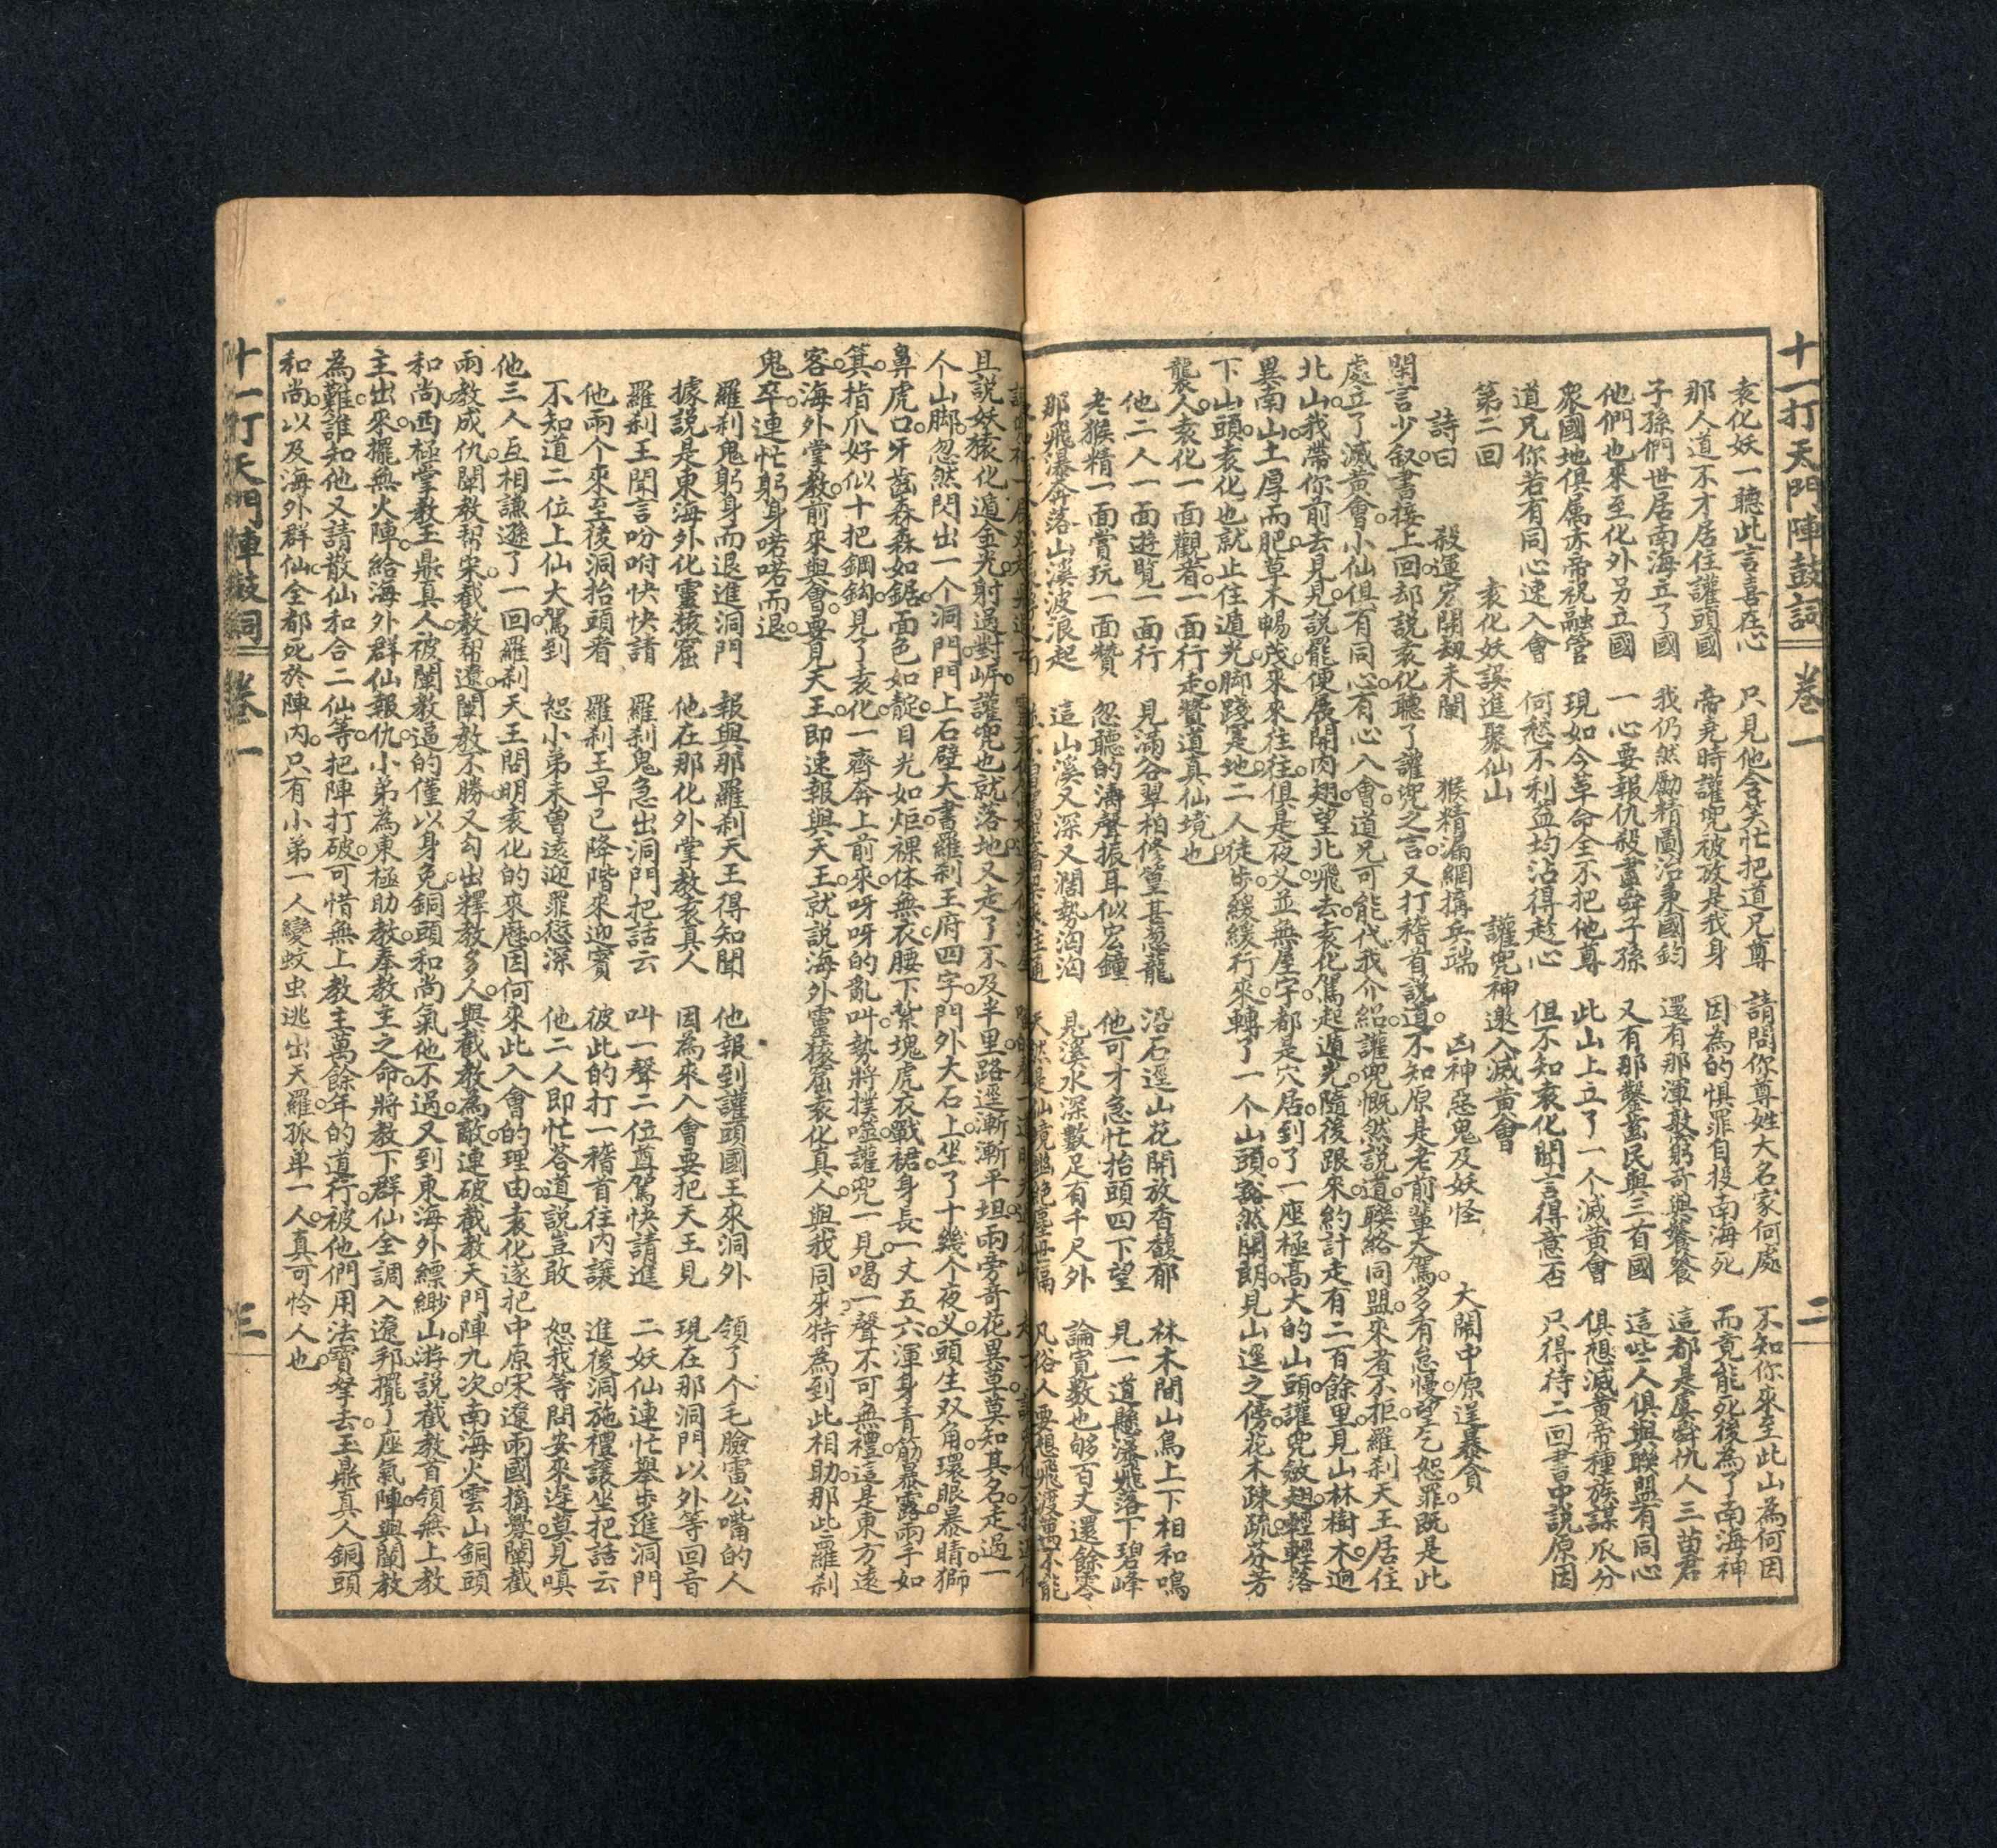 十一打天門陣鼓詞 卷一 二
袁化妖一聽此言喜在心 只見他含笑忙把道兄尊 請問你尊姓大名家何處 不知你來至此山為何因
那人道不才居住讙頭國 帝堯時讙兜被放是我身 因為的惧罪自投南海死 而竟能死後為了南海神
子孫們世居南海立了國 我仍然勵精圖治秉國鈞 還有那渾敦窮奇與饕餮 這都是虞舜仇人三苗君
他們也來至化外另立國 一心要報仇殺盡舜子孫 又有那鑿齒民與三首國 這些人俱與聯盟有同心
眾國地俱屬赤帝祝融管 現如今革命全不把他尊 此山上立了一个滅黃會 俱想滅黃帝種族謀瓜分
道兄你若有同心速入會 何愁不利益均沾得趁心 但不知袁化聞言得意否 只得待二回書中說原因
第二回 袁化妖誤進聚仙山 讙兜神邀入滅黃會
詩曰 殺運宏開劫未闌 猴精漏網搆兵端 凶神惡鬼及妖怪 大鬧中原逞暴貪
閑言少叙。書接上回。却說袁化聽了讙兜之言。又打稽首說道。不知原是老前輩大駕。多有怠慢。望乞恕罪。既是此
處立了滅黃會。小仙俱有同心。有心入會。道兄可能代我介紹。讙兜慨然說道。聯絡同盟。來者不拒。羅刹天王居住
北山。我帶你前去見見。說罷便展開肉翅。望北飛去。袁化駕起遁光。隨後跟來。約計走有二百餘里。見山林樹木。迥
異南山。土厚而肥。草木暢茂。來來往往。俱是夜叉。並無屋宇。都是穴居。到了一座極高大的山頭。讙兜斂翅。輕輕落
下山頭。袁化也就止住遁光。脚踐寔地。二人徒步。緩緩行來。轉了一个山頭。豁然開朗。見山逕之傍。花木疎疏。芬芳
襲人。袁化一面觀看。一面行走。贊道真仙境也。
他二人一面遊覽一面行 見滿谷翠柏修篁甚葱蘢 沿石逕山花開放香馥郁 林木間山鳥上下相和鳴
老猴精一面賞玩一面贊 忽聽的濤聲振耳似宏鐘 他可才急忙抬頭四下望 見一道懸瀑飛落下碧峰
那飛瀑奔落山溪波浪起 這山溪又深又濶勢洶洶 見溪水深數足有千尺外 論寬數也够百丈還餘零
且說妖猿化遁金光。射過對岍。讙兜也就落地。又走了不及半里。路逕漸漸平坦。兩旁奇花異草。莫知其名。走過一
个山脚。忽然閃出一个洞門。門上石壁大書羅刹王府四字。門外大石上。坐了十幾个夜叉。頭生双角。環眼暴睛。獅
鼻虎口。牙齒森森如鋸。面色如靛。目光如炬。裸体無衣。腰下紮塊虎衣戰裙。身長一丈五六。渾身青筋暴露。兩手如
箕。指爪好似十把鋼鈎。見了袁化。一齊奔上前來。呀呀的亂叫。勢將撲噬。讙兜一見。喝一聲不可無禮。這是東方遠
客。海外掌教。前來與會。要見天王。即速報與天王。就說海外靈猿窟袁化真人。與我同來。特為到此相助。那些羅刹
鬼卒。連忙躬身喏喏而退。
羅刹鬼躬身而退進洞門 報與那羅刹天王得知聞 他報到讙頭國王來洞外 領了个毛臉雷公嘴的人
據說是東海外化靈猿窟 他在那化外掌教袁真人 因為來入會要把天王見 現在那洞門以外等回音
羅刹王聞言吩咐快快請 羅刹鬼急出洞門把話云 叫一聲二位尊駕快請進 二妖仙連忙舉步進洞門
他兩个來至後洞抬頭看 羅刹王早已降階來迎賓 彼此的打一稽首往內讓 進後洞施禮讓坐把話云
不知道二位上仙大駕到 恕小弟未曾遠迎罪愆深 他二人即忙荅道說豈敢 恕我等問安來遲莫見嗔
他三人互相謙遜了一回。羅刹天王問明袁化的來歷。因何來此入會的理由。袁化遂把中原宋遼兩國搆釁。闡截
兩教成仇。闡教帮宋。截教帮遼。闡教不勝。又勾出釋教多人。與截教為敵。連破截教天門陣九次。南海火雲山銅頭
和尚。西極堂教玉鼎真人。被闡教逼的僅以身免。銅頭和尚氣他不過。又到東海外縹緲山。游說截教首領無上教
主出來。擺無火陣。給海外群仙報仇。小弟為東極助教。奉教主之命。將教下群仙全調入遼邦。擺了座氣陣。與闡教
為難。誰知他又請散仙和合二仙等。把陣打破。可惜無上教主萬餘年的道行。被他們用法寶拏去。玉鼎真人。銅頭
和尚。以及海外群仙。全都死於陣內。只有小弟一人變蚊虫逃出天羅。孤单一人。真可怜人也。
十一打天門陣鼓詞 卷一 三